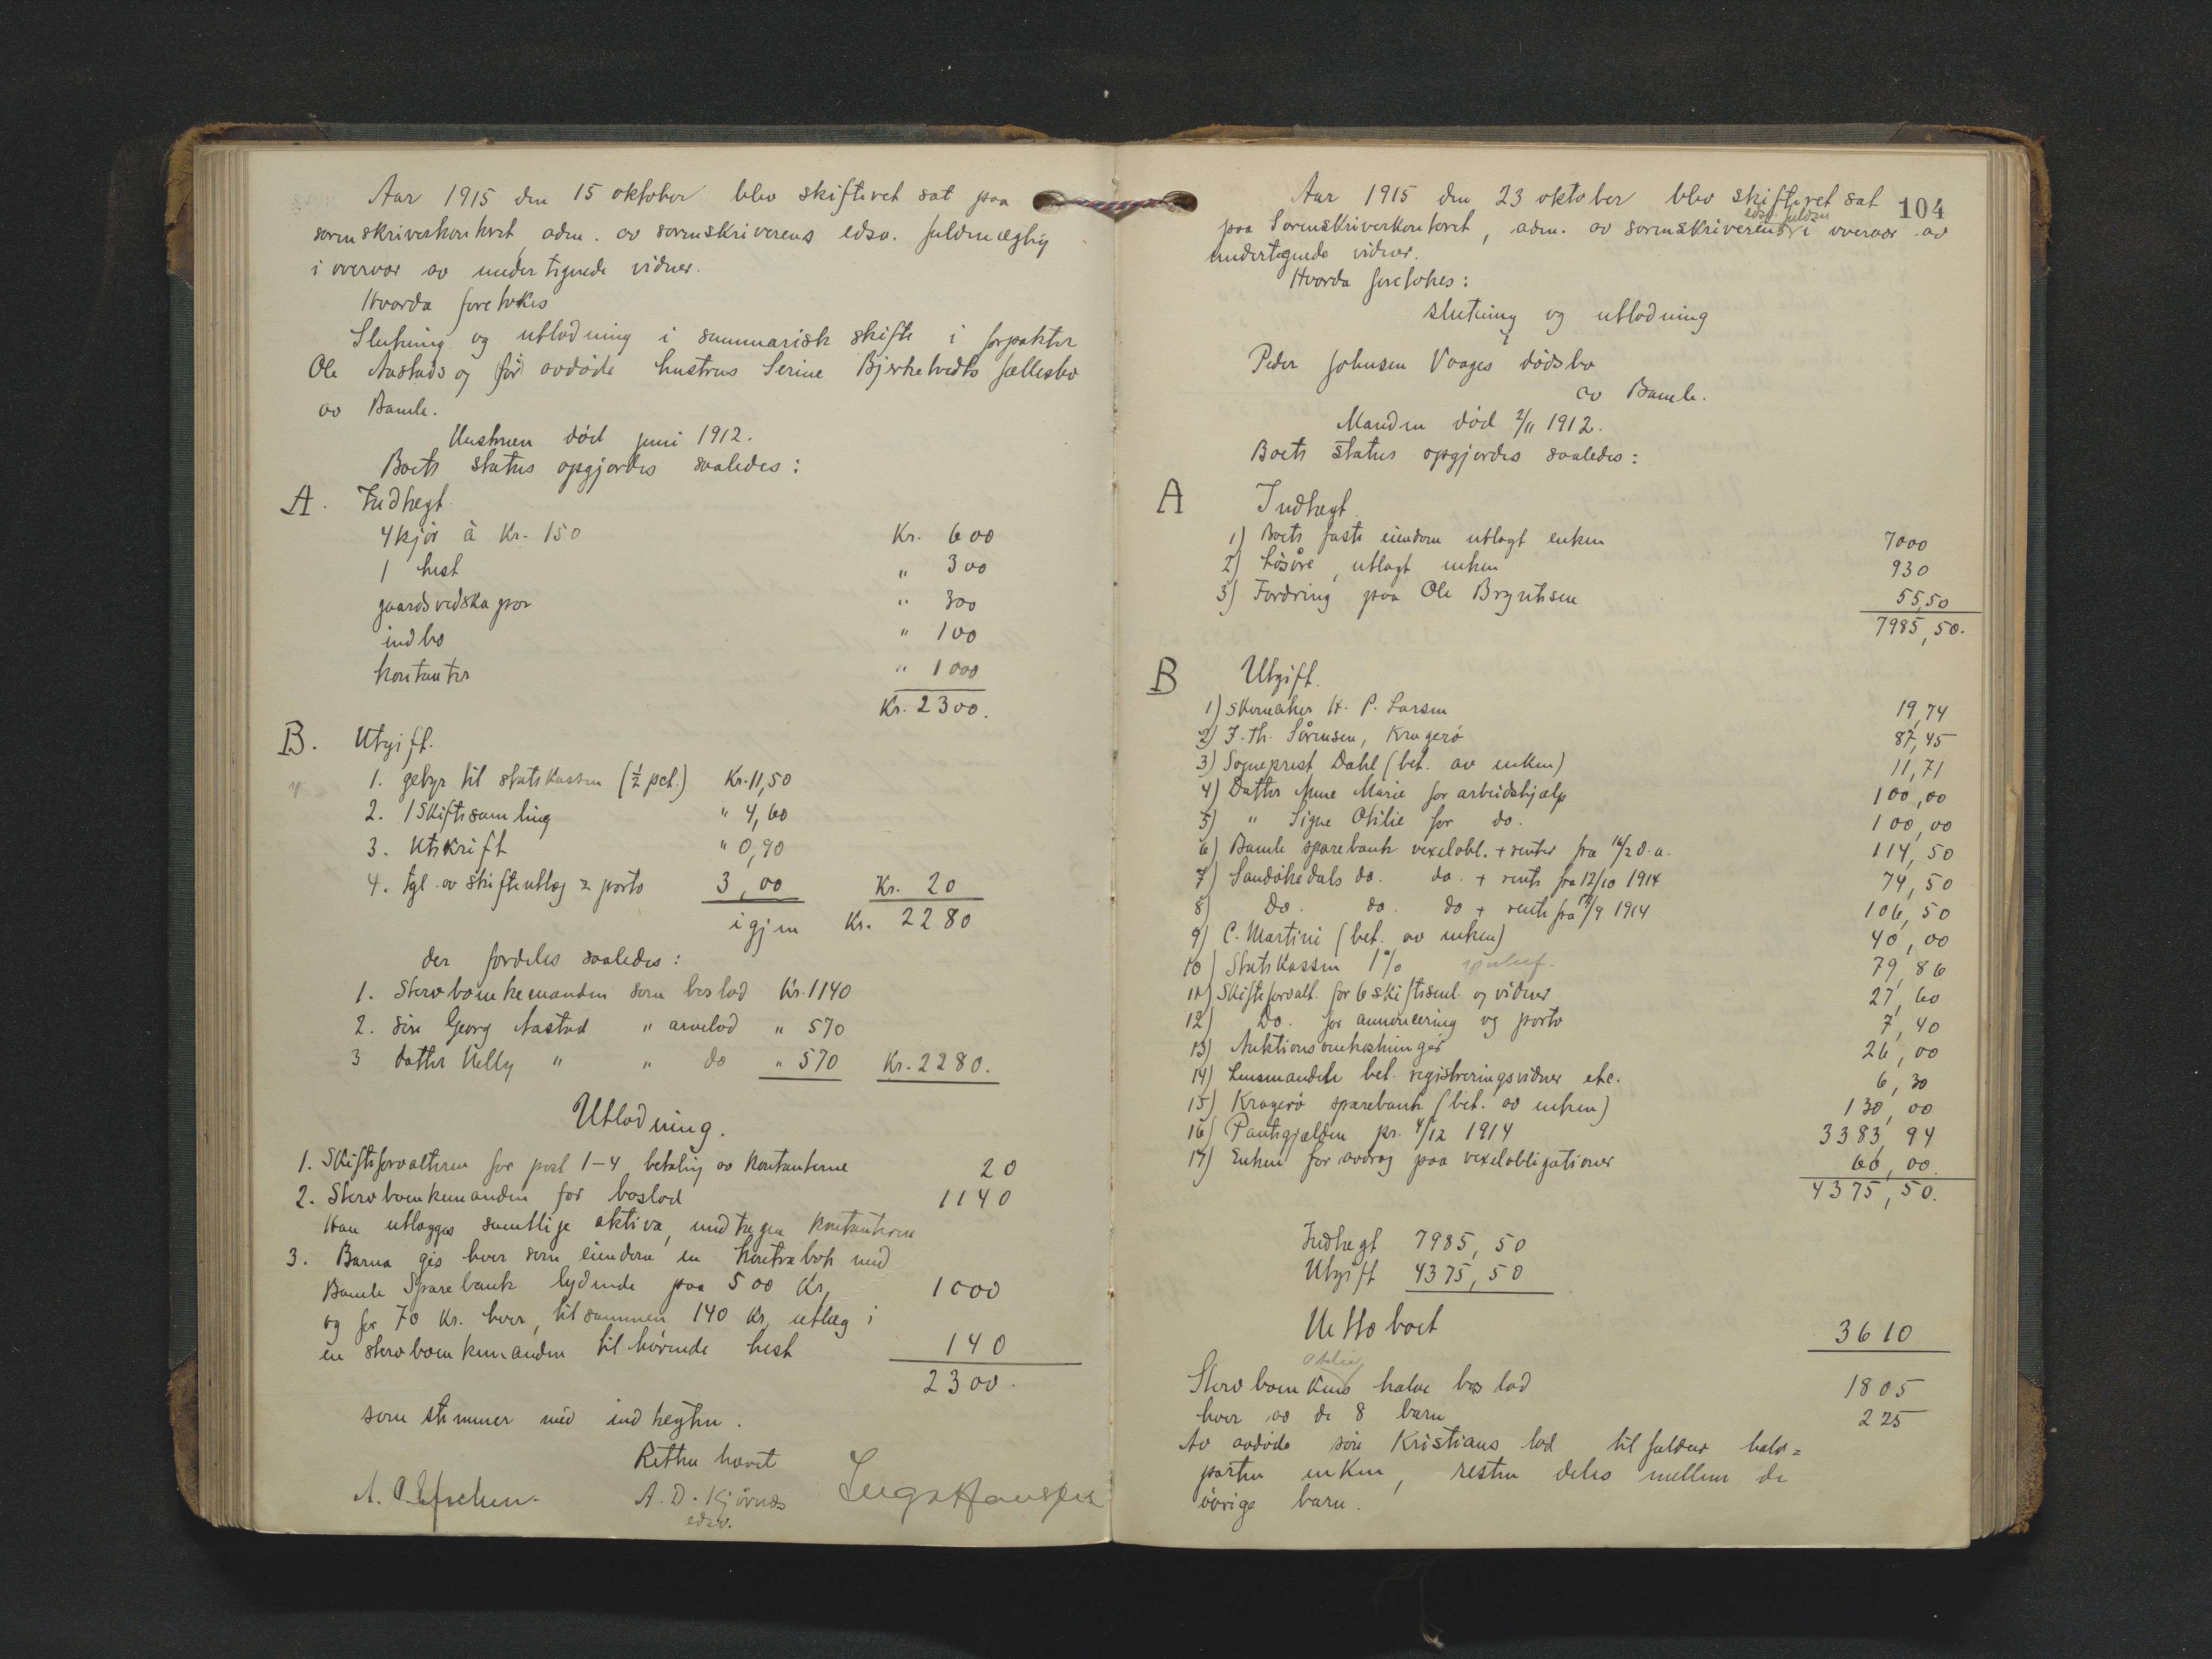 Aar 1915 den 15 oktober blev skifteret sat paa
sorenskriverkontoret, adm. av sorenskriverens edsv. fuldmægtig
i overvær av undertegnede vidner.
Hvorda foretokes
Slutning og utlodning i summarisk skifte i forpakter
Ole Aastads og før avdøde hustrus Serine Bjerketvedts fællesbo
av Bamle.
Hustruen død juni 1912.
Boets status opgjordes saaledes:
A. Indtægt.
4 kjør à Kr. 150 Kr. 600
1 hest " 300
gaardsredskaper " 300
indbo " 100
kontanter " 1000
Kr. 2300.
B. Utgift.
1. gebyr til statskassen (½ pct.) Kr. 11,50
2. 1 Skiftesamling " 4,60
3. Utskrift " 0,90
4. tgl. av skifteutlæg + porto 3,00 Kr. 20
igjen Kr. 2280
der fordeles saaledes:
1. Stervboenkemanden som boslod Kr. 1140
2. søn Georg Aastad " arvelod " 570
3 datter Nelly " " do " 570 Kr. 2280.
Utlodning.
1. Skifteforvalteren for post 1-4 betaling av kontanterne 20
2. Stervboenkemanden for boslod 1140
Han utlægges samtlige aktiva, undtagen kontanterne
3. Barna gis hver som eiendom en kontrabok med
Bamle Sparebank lydende paa 500 Kr, 1000
og for 70 Kr. hver, tilsammen 140 Kr, utlæg i
en stervboenkemanden tilhørende hest 140
2300.
som stemmer med indtægten.
Retten hævet
A. D. Kjørnæs
edsv.
104
Aar 1915 den 23 oktober blev skifteret sat
paa Sorenskriverkontoret, adm. av sorenskriverens edsv. fuldm i overvær av
undertegnede vidner.
Hvorda foretokes:
slutning og utlodning
i
Peder Johnsen Vaages dødsbo
av Bamle.
Manden død 2/11 1912.
Boets status opgjordes saaledes:
A Indtægt.
1) Boets faste eiendom utlagt enken 7000
2) Løsøre, utlagt enken 930
3) Fordring paa Ole Bryntesen 55,50
7985,50.
B Utgift.
1) Skomaker H. P. Larsen 19,74
2) J. Th. Sørensen, Kragerø 87,45
3) Sogneprest Dahl (bet. av enken) 11,71
4) Datter Anne Marie for arbeidshjælp 100,00
5) " Signe Otilie for do. 100,00
6) Bamle sparebank vexelobl. + renter fra 16/2 d. a. 114,50
7) Sandøkedals do. do. + rente fra 12/10 1914 74,50
8) Do. do. do + rente fra 17/9 1914 106,50
9) C. Martini (bet. av enken) 40,00
10) Statskassen 1% 79,86
11) Skifteforvalt. for 6 skiftesml. og vidner 27,60
12) Do. for annoncering og porto 7,40
13) Auktionsomkostninger 26,00
14) Lensmanden bet. registreringsvidner etc. 6,30
15) Kragerø sparebank (bet. av enken) 130,00
16) Pantegjælden pr. 4/12 1914 3383,94
17) Enken for avdrag paa vexelobligationer 60,00.
4375,50.
Indtægt 7985,50
Utgift 4375,50
Netto boet 3610
Otilie
Stervboenkens halve boslod 1805
hver av de 8 barn 225
Av avdøde søn Kristians lod tilfalder halv=
parten enken, resten deles mellem de
øvrige barn.